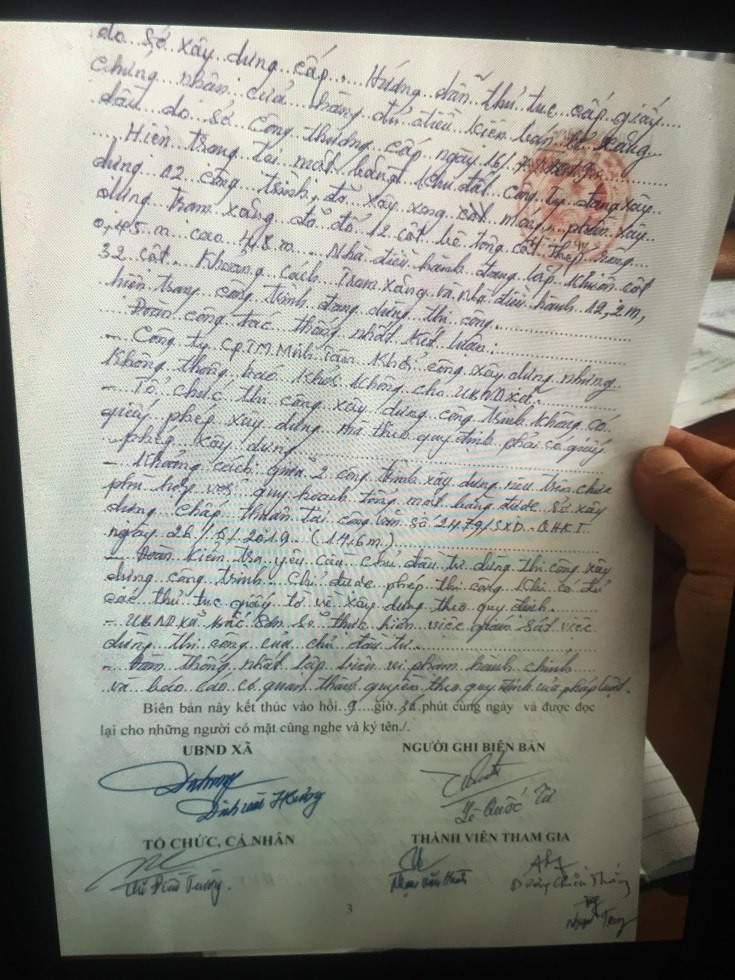 do sở xây dựng cấp. Hướng dẫn thủ tục cấp giấy
chứng nhận cửa hàng đủ điều kiện bán lẻ xăng
dầu do sở Công thương cấp ngày 16/7/2019.
Hiện trạng tại mặt bằng khu đất công ty đang xây
dựng 02 công trình, đã xây xong móng, phần xây
dựng Trạm xăng đã đổ 12 cột bê tông cốt thép
0,45 m cao 4,8 m. Nhà điều hành đang lắp khuôn cột
32 cột. Khoảng cách Trạm xăng và nhà điều hành 12,2m,
hiện trạng công trình đang dừng thi công.
Đoàn công tác thống nhất kết luận:
- Công ty CP.TM Minh Tâm khởi công xây dựng nhưng
không thông báo khởi công cho UBND xã.
- Tổ chức thi công xây dựng công trình không có
giấy phép xây dựng mà theo quy định phải có giấy
phép xây dựng
- Khoảng cách giữa 2 công trình xây dựng nêu trên chưa
phù hợp với quy hoạch tổng mặt bằng được sở xây
dựng chấp thuận tại công văn số 2479/SXD-QHKT
ngày 26/5/2019. (17,6m)
- Đoàn kiểm tra yêu cầu chủ đầu tư dừng thi công xây
dựng công trình. Chỉ được phép thi công khi có đủ
các thủ tục giấy tờ về xây dựng theo quy định.
- UBND xã Bắc Sơn sẽ thực hiện việc giám sát việc
dừng thi công của chủ đầu tư.
- Đoàn thống nhất lập biên vi phạm hành chính
và báo cáo cơ quan thẩm quyền theo quy định của pháp luật.
Biên bản này kết thúc vào hồi 9 giờ 30 phút cùng ngày và được đọc
lại cho những người có mặt cùng nghe và ký tên./.
UBND XÃ NGƯỜI GHI BIÊN BẢN
Lê Quốc Tư
TỔ CHỨC, CÁ NHÂN THÀNH VIÊN THAM GIA
Dương Chiến Thắng
3